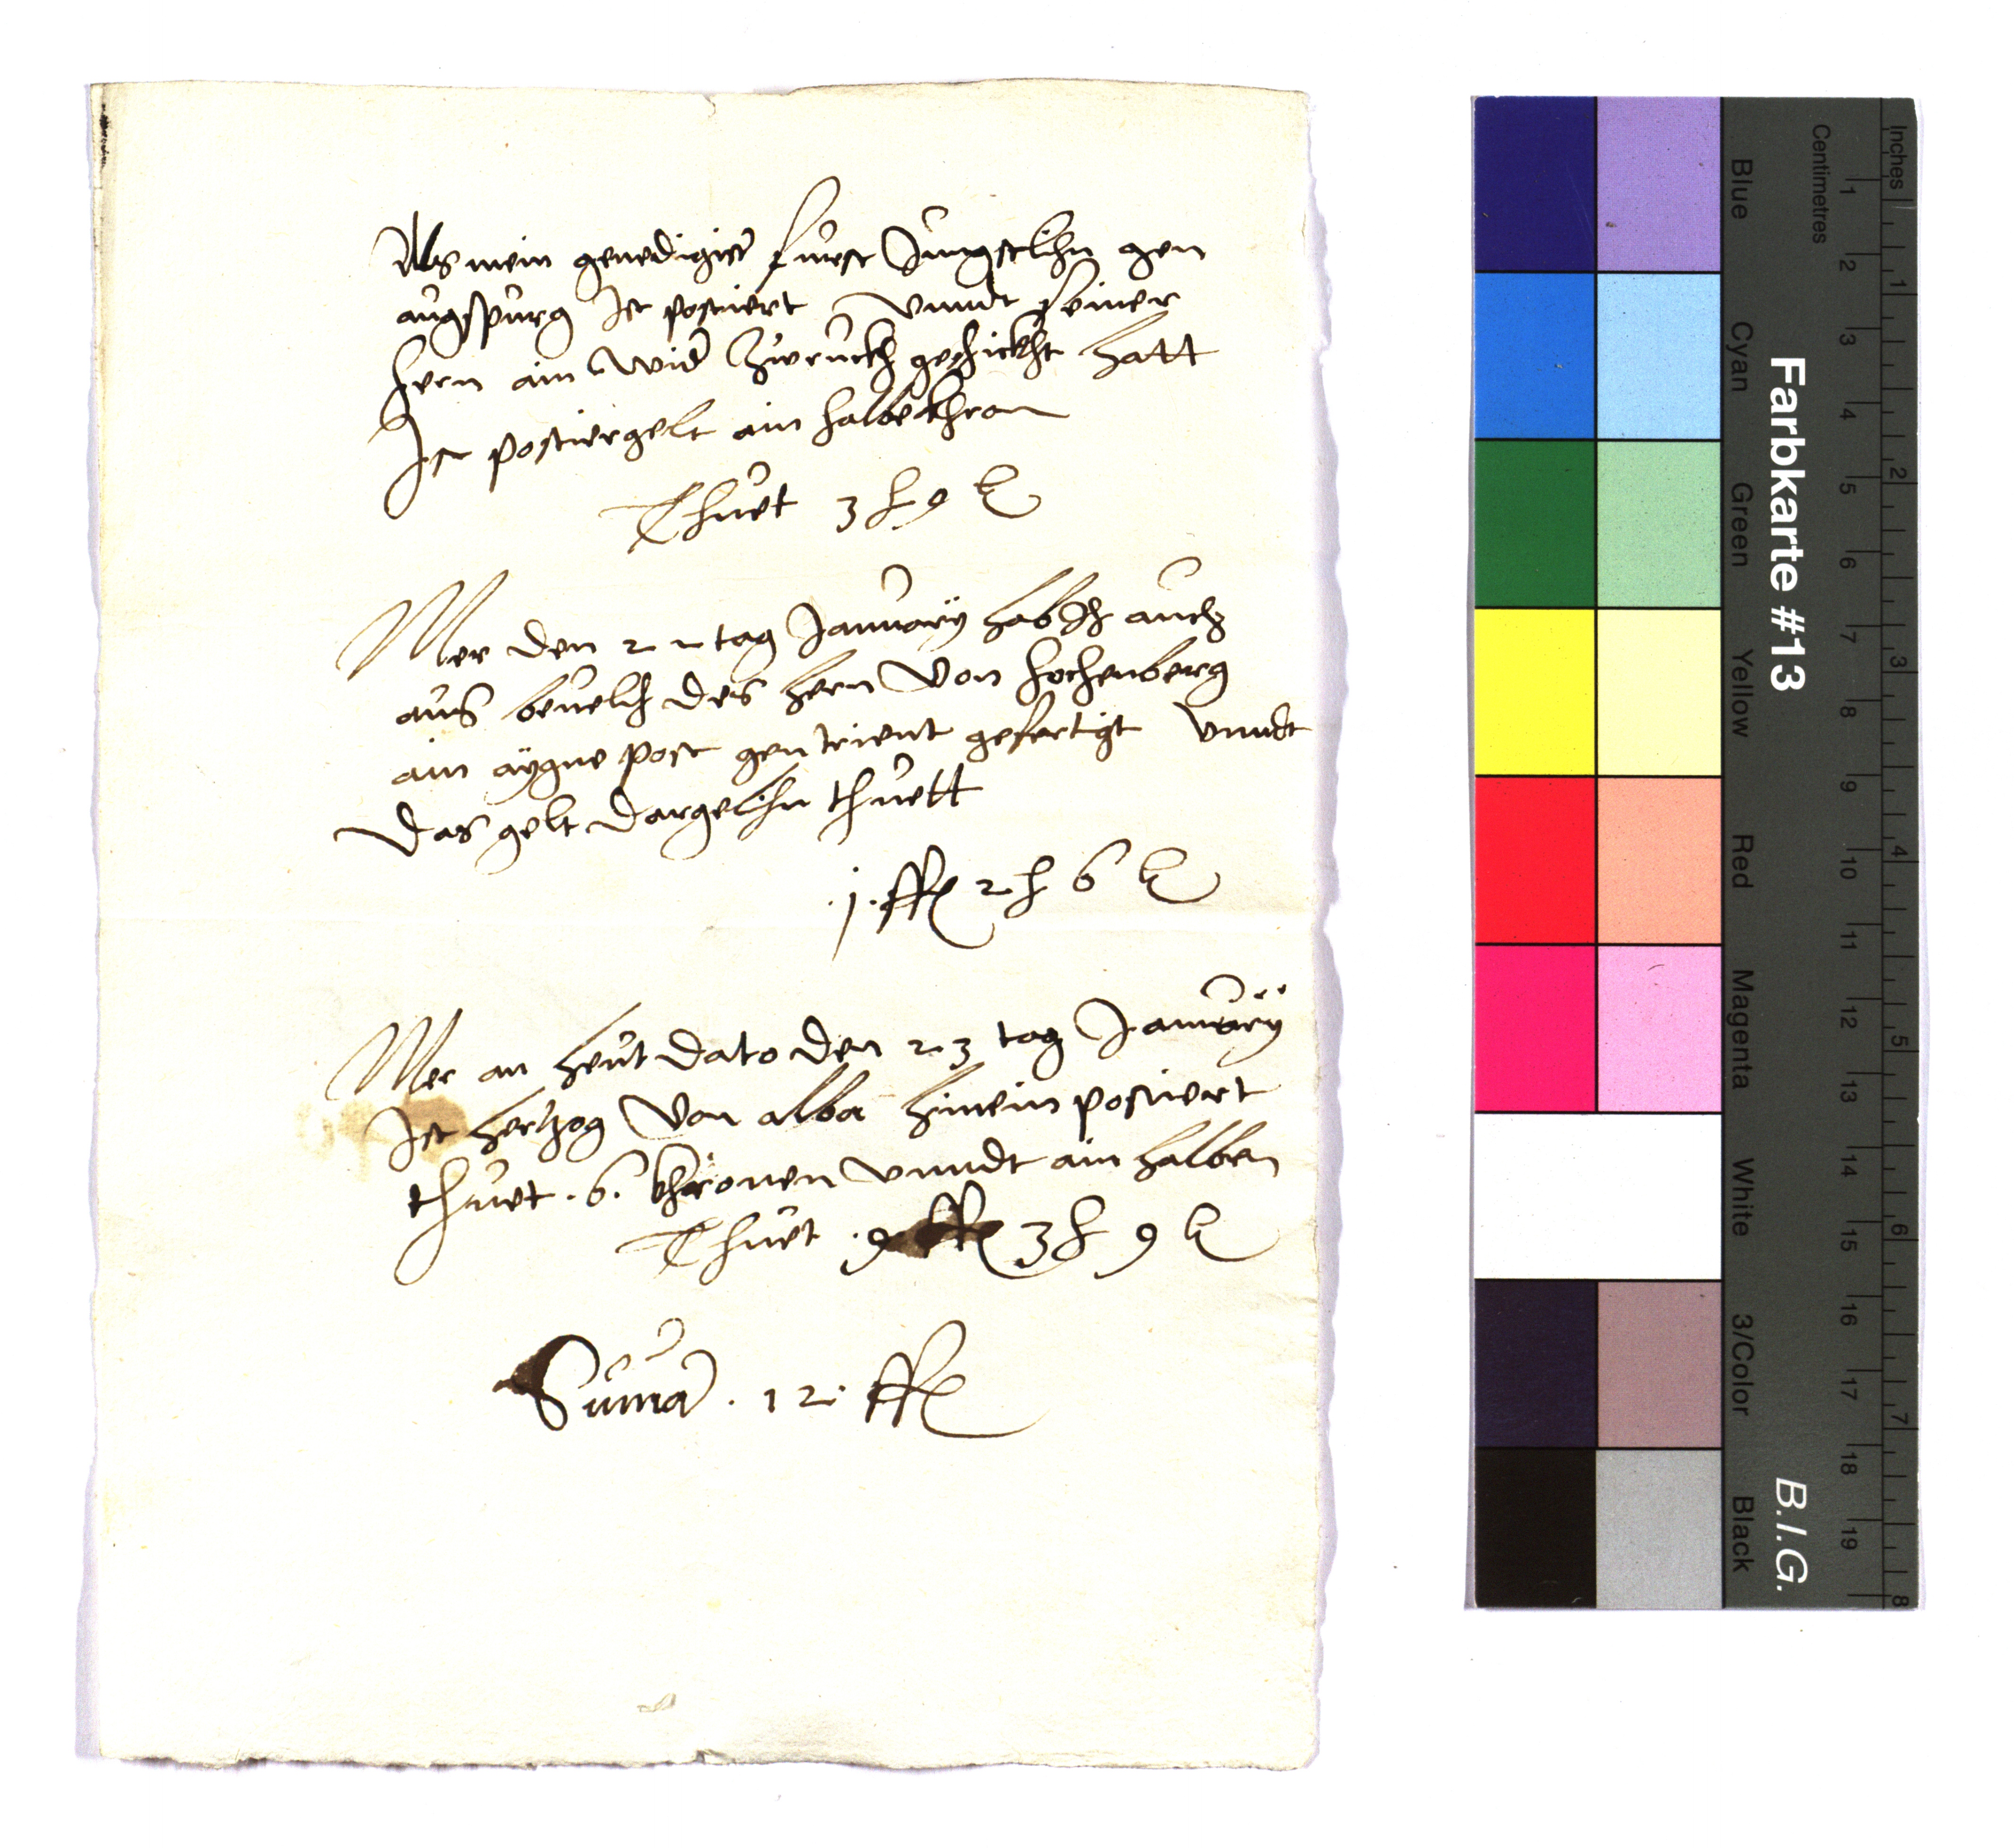 Als mein genedigist fuerst Jungstlihn gen
augspurg Ist postiert vnnd seiner
hern ain wid Zwruckh geschickht hatt
Ist postiergelt ain halbe khron
Thuet 3 ß 9 k
Mer den 22 tag January hab Ich auch
aus beuelch des hern von hochenberg
ain aygne post gen trient gefertigt vnndt
das gelt dargelihn thuett
.j. ffl 2 ß 6 k
Mer an heut dato den 23 tag January
Ist hertzog von alba hinein postiert
thuet .6. khronen vnndt ain halben
Thuet .9. ffl 3 ß 9 k
Suma . 12 . ffl
Farbkarte #13
B.I.G.
Inches 1 2 3 4 5 6 7 8
Centimetres 1 2 3 4 5 6 7 8 9 10 11 12 13 14 15 16 17 18 19
Blue Cyan Green Yellow Red Magenta White 3/Color Black